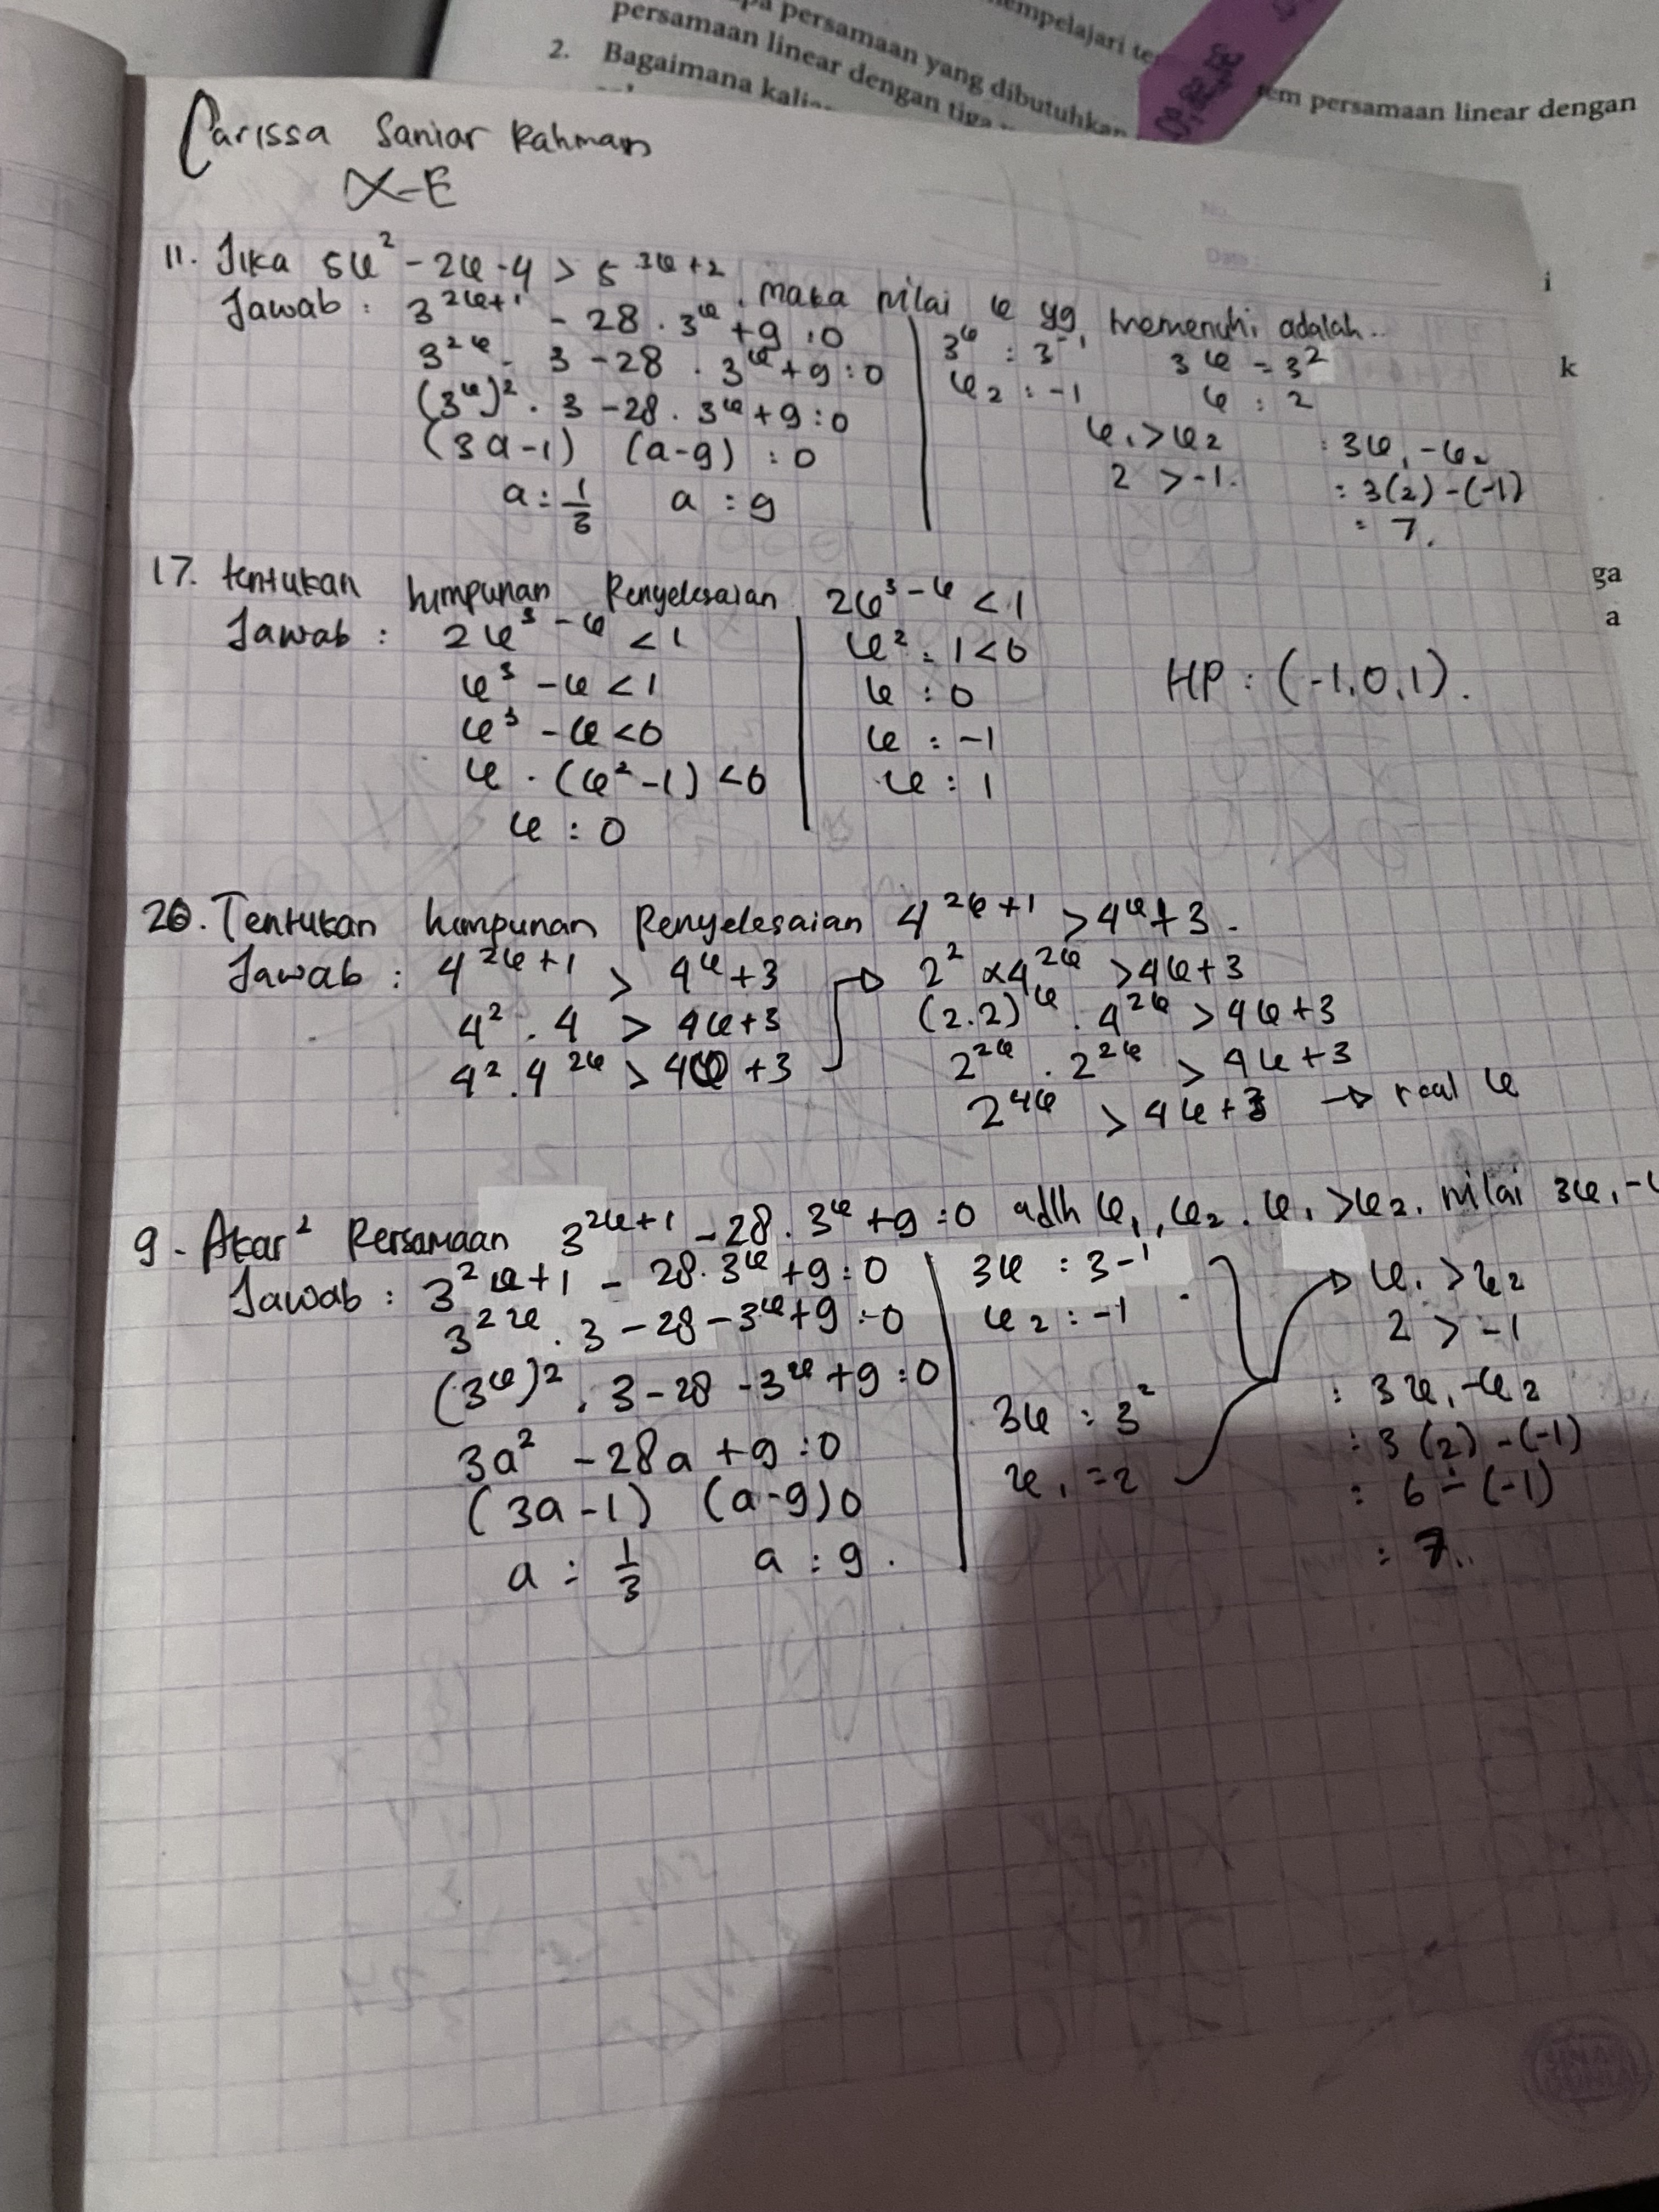 persamaan yang dibutuhkan
persamaan linear dengan tiga
2. Bagaimana
empelajari
tem persamaan linear dengan
Carissa Saniar Rahman
X-E
No.
Date:
i
11. Jika 5x² - 2x - 4 > 5^3x+2, maka nilai x yg memenuhi adalah..
Jawab : 3^2x+1 - 28 . 3^x + 9 : 0
3^2x . 3 - 28 . 3^x + 9 : 0
(3^x)² . 3 - 28 . 3^x + 9 : 0
(3a - 1) (a - 9) : 0
a : 1/3 a : 9
3^x : 3^-1
x2 : -1
3x = 3²
x : 2
x1 > x2
2 > -1.
: 3x1 - x2
: 3(2) - (-1)
: 7.
k
ga
a
17. tentukan himpunan Penyelesaian 2x^3-x < 1
Jawab : 2x^3-x < 1
x³ - x < 1
x³ - x < 0
x . (x² - 1) < 0
x : 0
x² - 1 < 0
x : 0
x : -1
x : 1
HP : (-1,0,1).
20. Tentukan himpunan Penyelesaian 4^2x+1 > 4^x + 3.
Jawab : 4^2x+1 > 4^x + 3
4² . 4 > 4x + 3
4² . 4^2x > 4x + 3
→ 2² x 4^2x > 4x + 3
(2.2)^x . 4^2x > 4x + 3
2^2x . 2^2x > 4x + 3
2^4x > 4x + 3 → real x
9. Akar² Persamaan 3^2x+1 - 28 . 3^x + 9 : 0 adlh x1, x2. x1 > x2. nilai 3x1 -
Jawab : 3^2x+1 - 28 . 3^x + 9 : 0
3^2x . 3 - 28 - 3^x + 9 : 0
(3^x)² . 3 - 28 - 3^x + 9 : 0
3a² - 28a + 9 : 0
(3a - 1) (a - 9) 0
a : 1/3 a : 9.
3x : 3-1
x2 : -1
3x : 3²
x1 = 2
→ x1 > x2
2 > -1
: 3x1 - x2
: 3 (2) - (-1)
: 6 - (-1)
: 7..